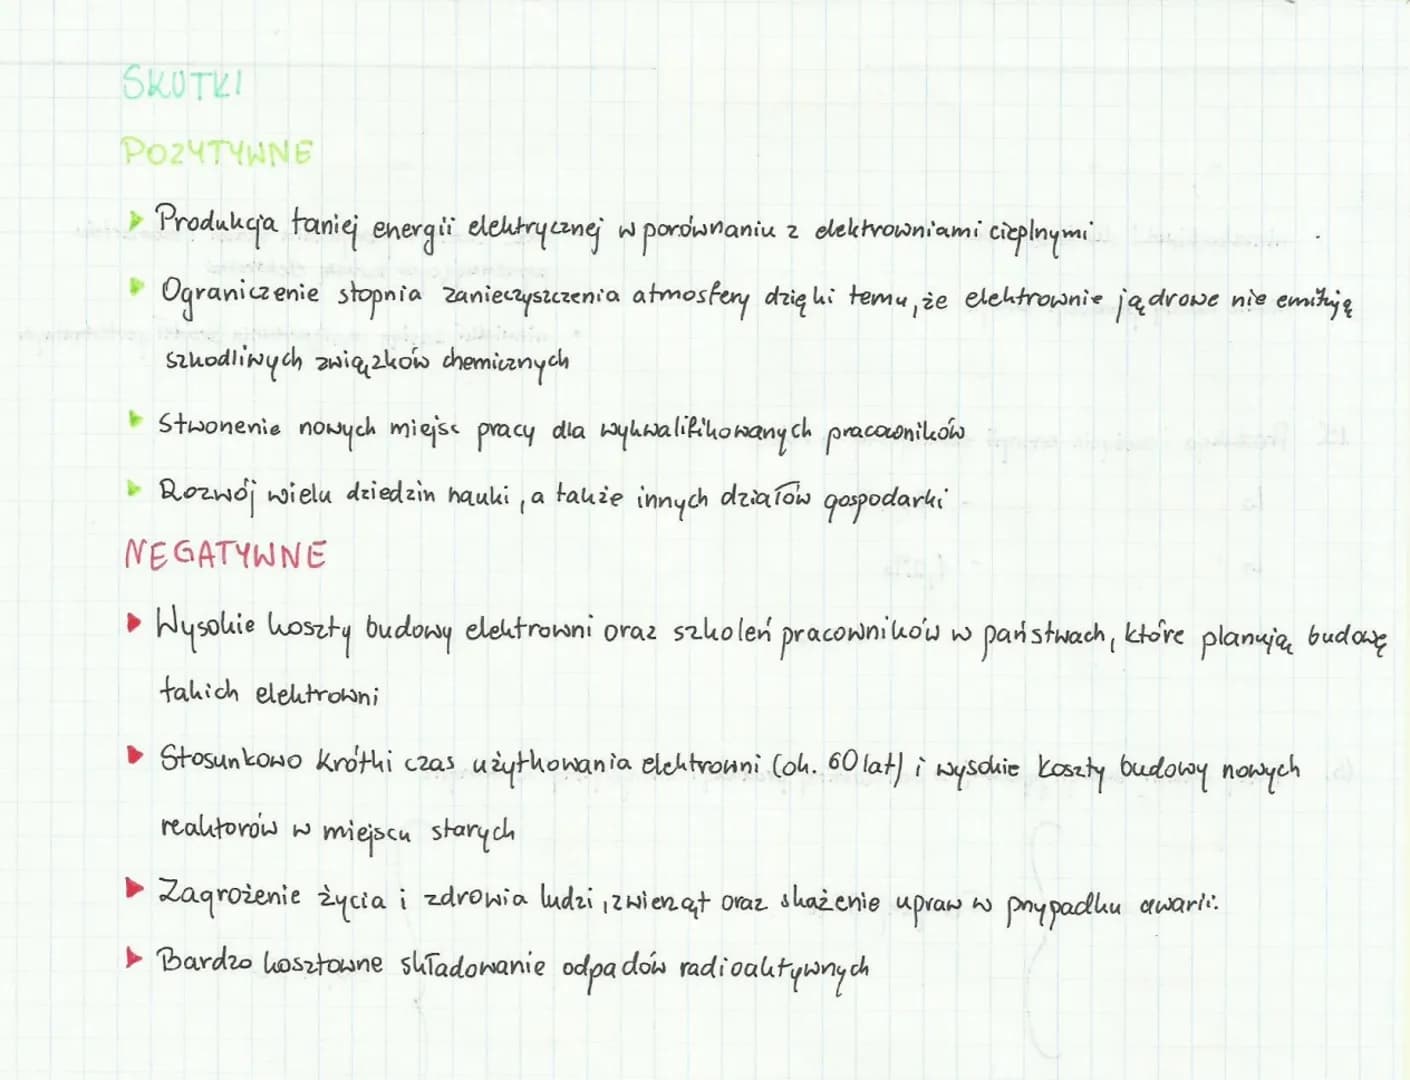 SKUTKI
POZYTYWNE
Produkcja taniej energii elektrycznej w porównaniu z elektrowniami cieplnymi
Ograniczenie stopnia zanieczyszczenia atmosfery dzięki temu, że elektrownie jądrowe nie emitują
szkodliwych związków chemicznych
Stworzenie nowych miejsc pracy dla wykwalifikowanych pracowników
Rozwój wielu dziedzin nauki, a także innych działów gospodarki
NEGATYWNE
Wysokie koszty budowy elektrowni oraz szkoleń pracowników w państwach, które planują budowę
takich elektrowni
Stosunkowo krótki czas użytkowania elektrowni (ok. 60 lat) i wysokie koszty budowy nowych
reaktorów w miejscu starych
Zagrożenie życia i zdrowia ludzi, zwierząt oraz skażenie upraw w przypadku awarii.
Bardzo kosztowne składowanie odpadów radioaktywnych